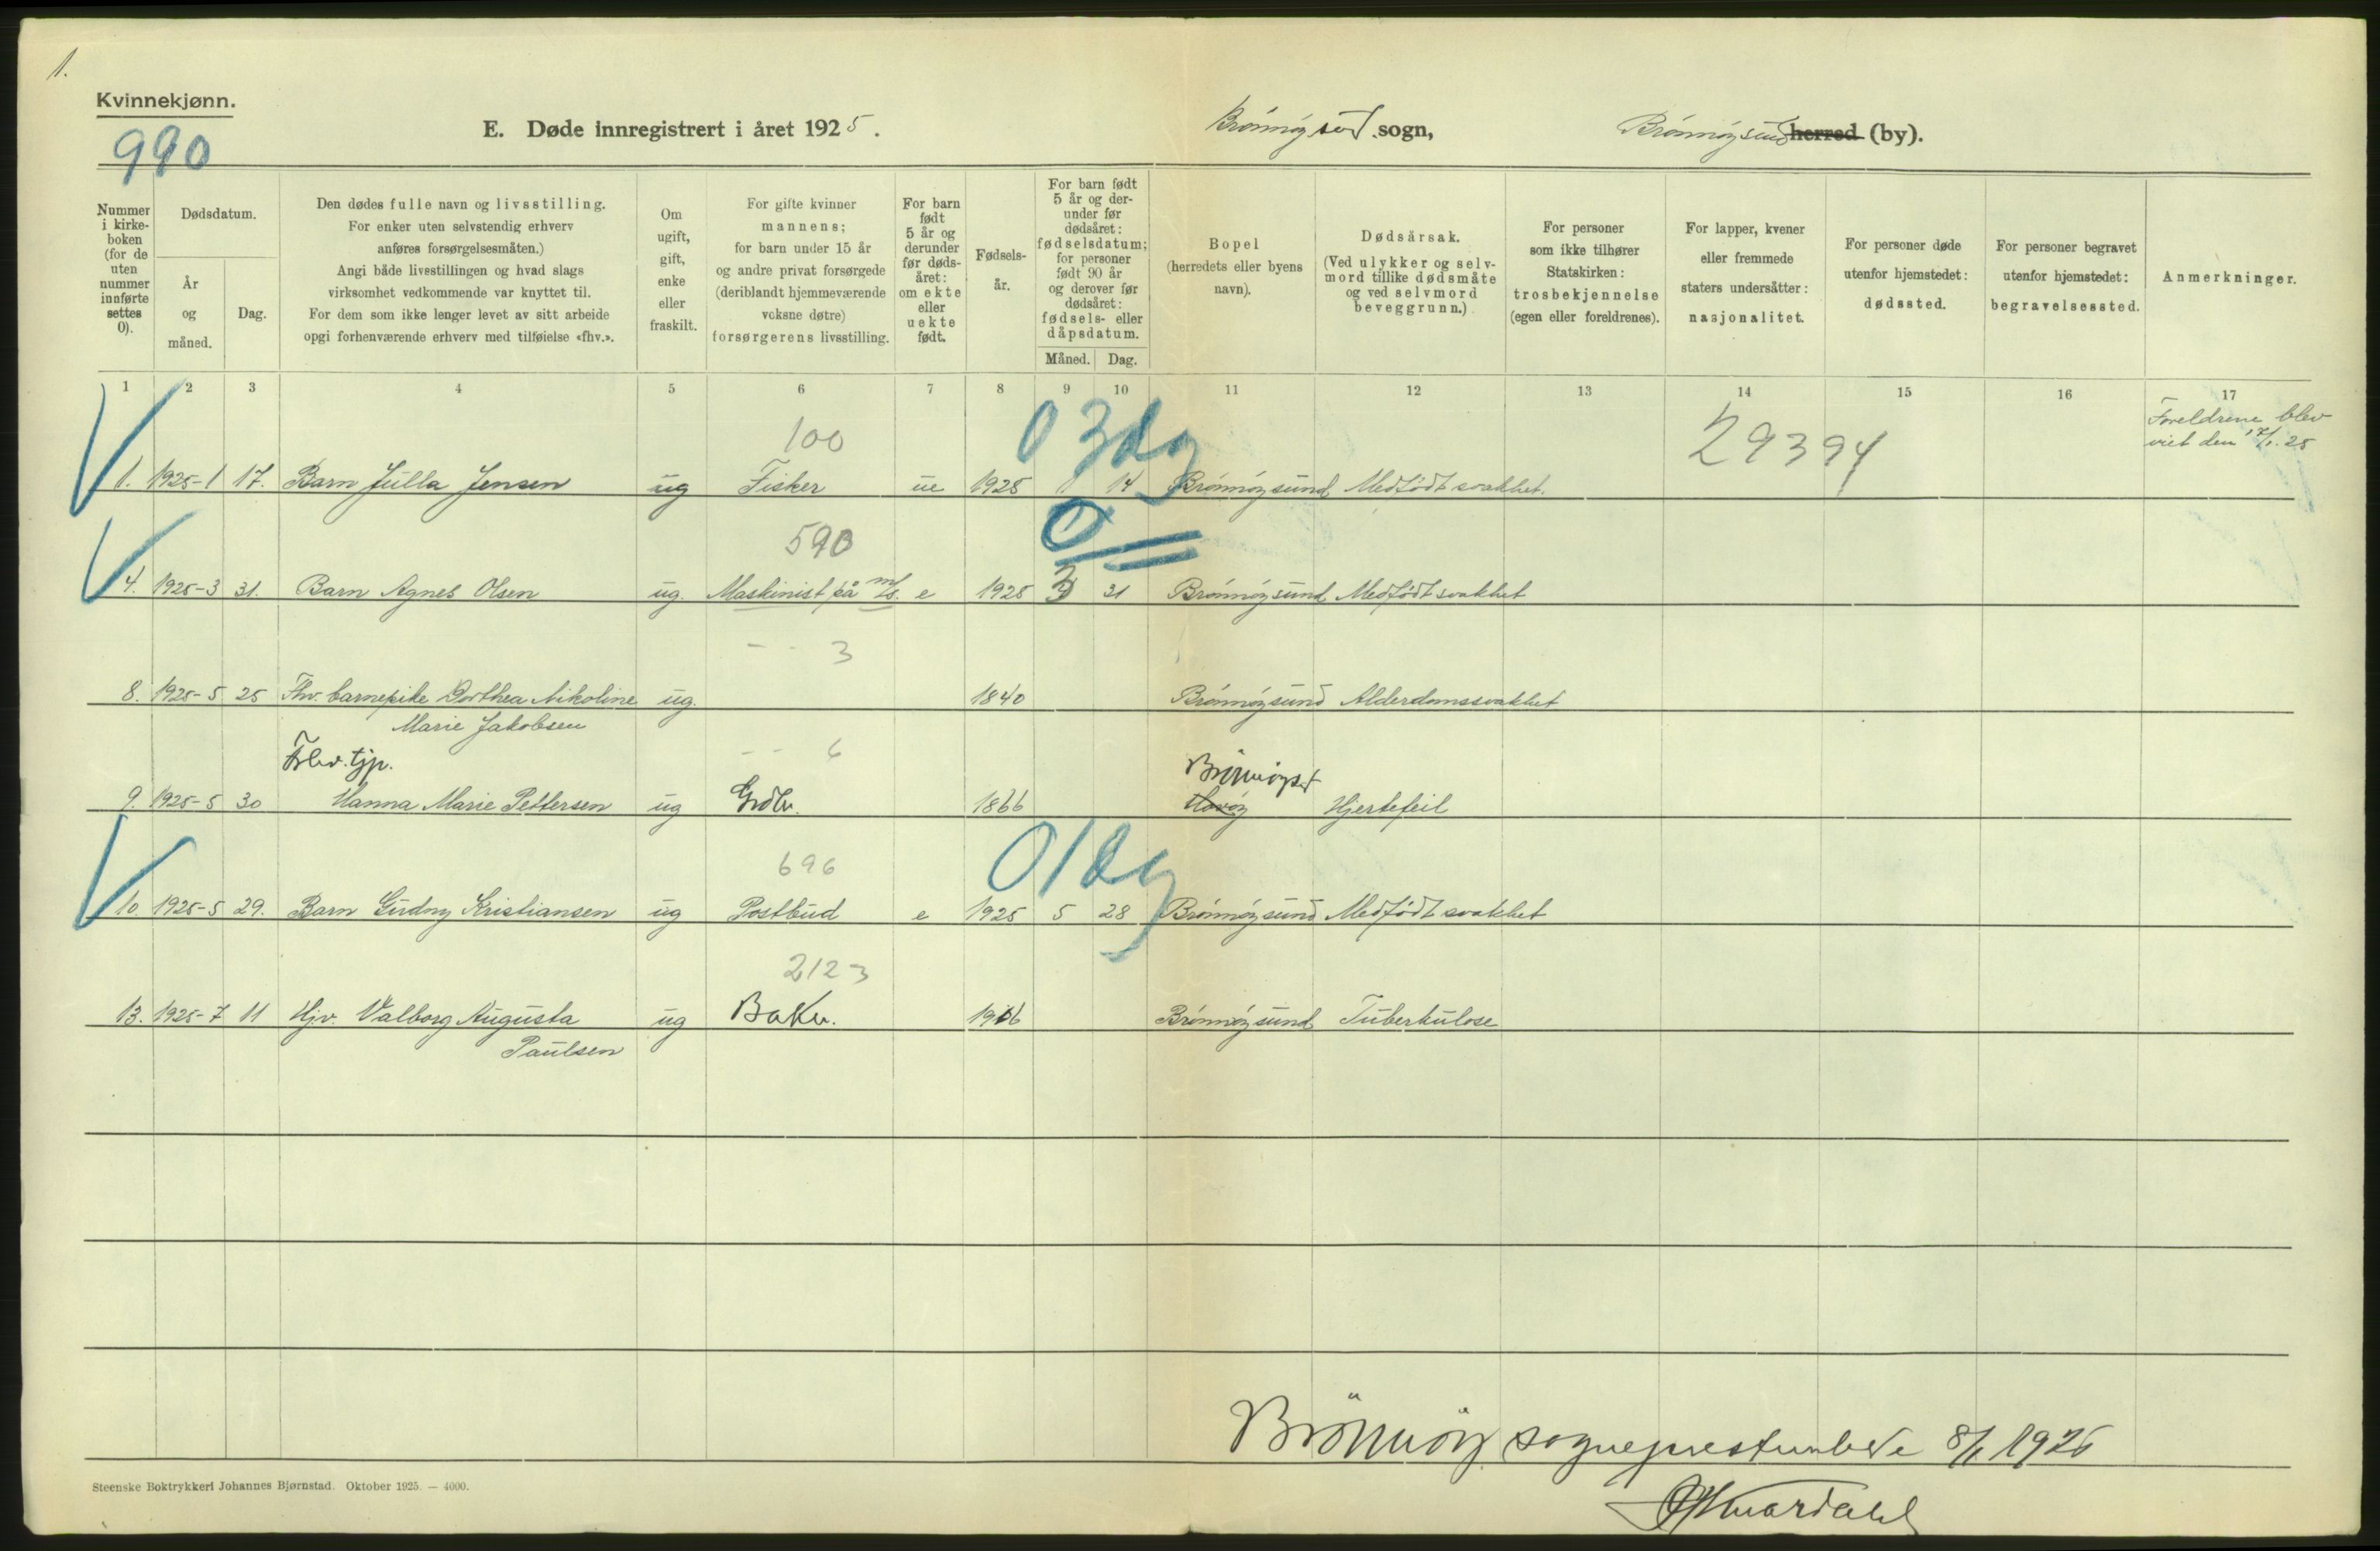 1.
Kvinnekjønn.
990
E. Døde innregistrert i året 1925.
Brönnöysund sogn,
Brönnöysund herred (by).
Nummer i kirke-boken (for de uten nummer innførte settes 0).
Dødsdatum.
År og måned.
Dag.
Den dødes fulle navn og livsstilling.
For enker uten selvstendig erhverv
anføres forsørgelsesmåten.)
Angi både livsstillingen og hvad slags
virksomhet vedkommende var knyttet til.
For dem som ikke lenger levet av sitt arbeide
opgi forhenværende erhverv med tilføielse «fhv.».
Om ugift, gift, enke eller fraskilt.
For gifte kvinner
mannens;
for barn under 15 år
og andre privat forsørgede
(deriblandt hjemmeværende
voksne døtre)
forsørgerens livsstilling.
For barn født 5 år og derunder før døds-året: om ekte eller uekte født.
Fødsels-år.
For barn født 5 år og der-under før dødsåret: fødselsdatum; for personer født 90 år og derover før dødsåret: fødsels- eller dåpsdatum.
Måned. Dag.
Bopel
(herredets eller byens
navn).
Dødsårsak.
(Ved ulykker og selv-
mord tillike dødsmåte
og ved selvmord
beveggrunn.)
For personer
som ikke tilhører
Statskirken:
trosbekjennelse
(egen eller foreldrenes).
For lapper, kvener
eller fremmede
staters undersåtter:
nasjonalitet.
For personer døde
utenfor hjemstedet:
dødssted.
For personer begravet
utenfor hjemstedet:
begravelsessted.
Anmerkninger.
1 2 3 4 5 6 7 8 9 10 11 12 13 14 15 16 17
100 0 3 dg 29394 Foreldrene blev
viet den 17/1. 25
1. 1925-1 17. Barn Julla Jensen ug Fisker ue 1925 1 14 Brönnöysund Medfödt svakhet.
590 0
4. 1925-3 31. Barn Agnes Olsen ug. Maskinist på e 1925 3 31 Brönnöysund Medfödt svakhet
- - 3
8. 1925-5 25 Fhv. barnepike Dorthea Nikoline ug. 1840 Brönnöysund Alderdomssvakhet
Marie Jakobsen
Fhv. tjp. - - 6 Brönnöys.
9. 1925-5 30 Hanna Marie Pettersen ug Grdbr. 1866 Hjertefeil
696 0 1 dg
10. 1925-5 29. Barn Gudny Kristiansen ug Postbud e 1925 5 28 Brönnöysund Medfödt svakhet
2123
13. 1925-7 11 Hjv. Valborg Augusta ug Baker. 1906 Brönnöysund Tuberkulose
Paulsen
Brönnöy sogneprestembede 8/1 1926
Steenske Boktrykkeri Johannes Bjørnstad. Oktober 1925. — 4000.